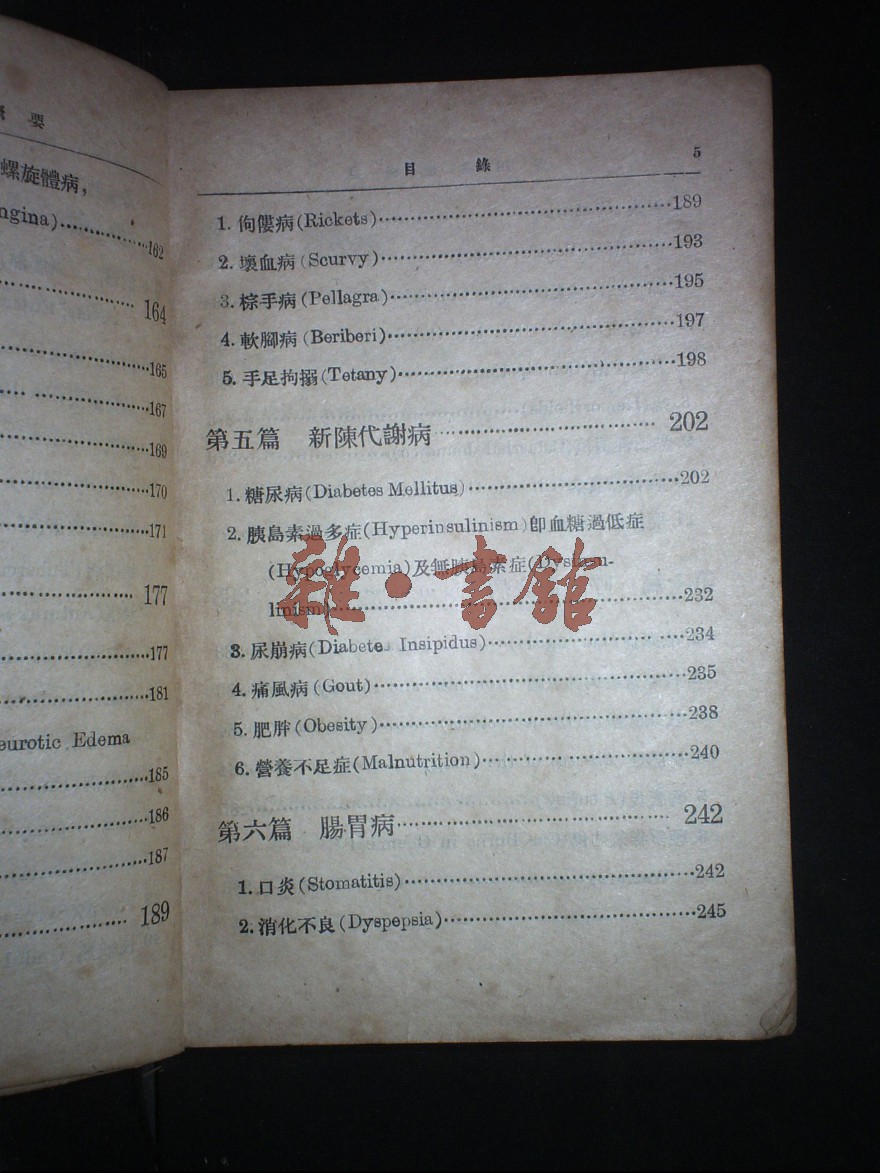 要
螺旋體病,
ngina)……162
……164
……165
……167
……169
……170
……171
……177
……177
……181
eurotic Edema
……185
……186
……187
……189
目 錄 5
1. 佝僂病(Rickets)……189
2. 壞血病(Scurvy)……193
3. 棕手病(Pellagra)……195
4. 軟腳病(Beriberi)……197
5. 手足拘搦(Tetany)……198
第五篇 新陳代謝病……202
1. 糖尿病(Diabetes Mellitus)……202
2. 胰島素過多症(Hyperinsulinism)卽血糖過低症
(Hypoglycemia)及無胰島素症(Dysinsu-
linism)……232
3. 尿崩病(Diabete Insipidus)……234
4. 痛風病(Gout)……235
5. 肥胖(Obesity)……238
6. 營養不足症(Malnutrition)……240
第六篇 腸胃病……242
1. 口炎(Stomatitis)……242
2. 消化不良(Dyspepsia)……245
雜·書館